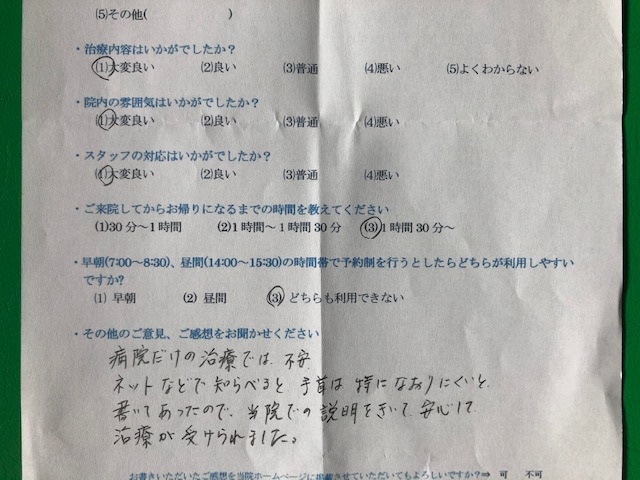 (5)その他(　　　　　　)
・治療内容はいかがでしたか？
(1)大変良い　(2)良い　(3)普通　(4)悪い　(5)よくわからない
・院内の雰囲気はいかがでしたか？
(1)大変良い　(2)良い　(3)普通　(4)悪い
・スタッフの対応はいかがでしたか？
(1)大変良い　(2)良い　(3)普通　(4)悪い
・ご来院してからお帰りになるまでの時間を教えてください
(1)30分～1時間　(2)1時間～1時間30分　(3)1時間30分～
・早朝(7:00～8:30)、昼間(14:00～15:30)の時間帯で予約制を行うとしたらどちらが利用しやすい
ですか?
(1) 早朝　(2) 昼間　(3) どちらも利用できない
・その他のご意見、ご感想をお聞かせください
病院だけの治療では 不安
ネットなどで知らべると 手首は 特になおりにくいと
書いてあったので、当院での説明をきいて安心して
治療が受けられました。
お書きいただいたご感想を当院ホームページに掲載させていただいてもよろしいですか？⇒　可　不可